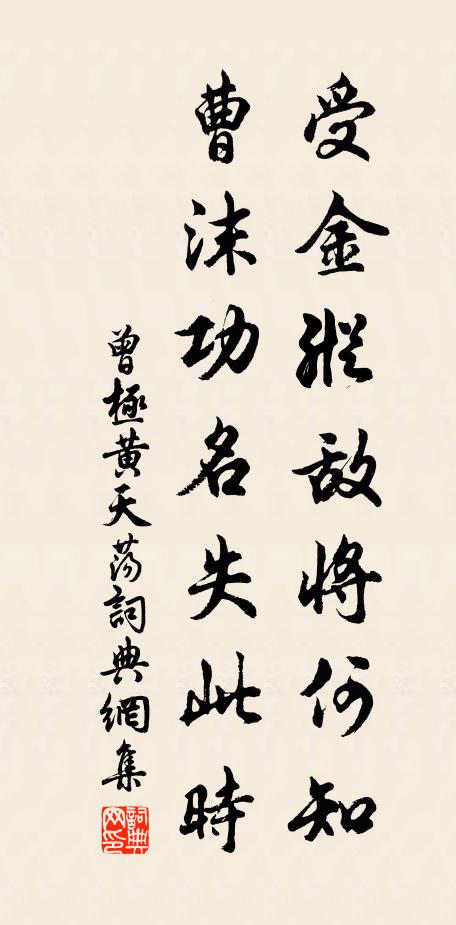 受金縱敌將何知
曹沫功名失此時
曾極黄天蕩詞典網集
詞典网印